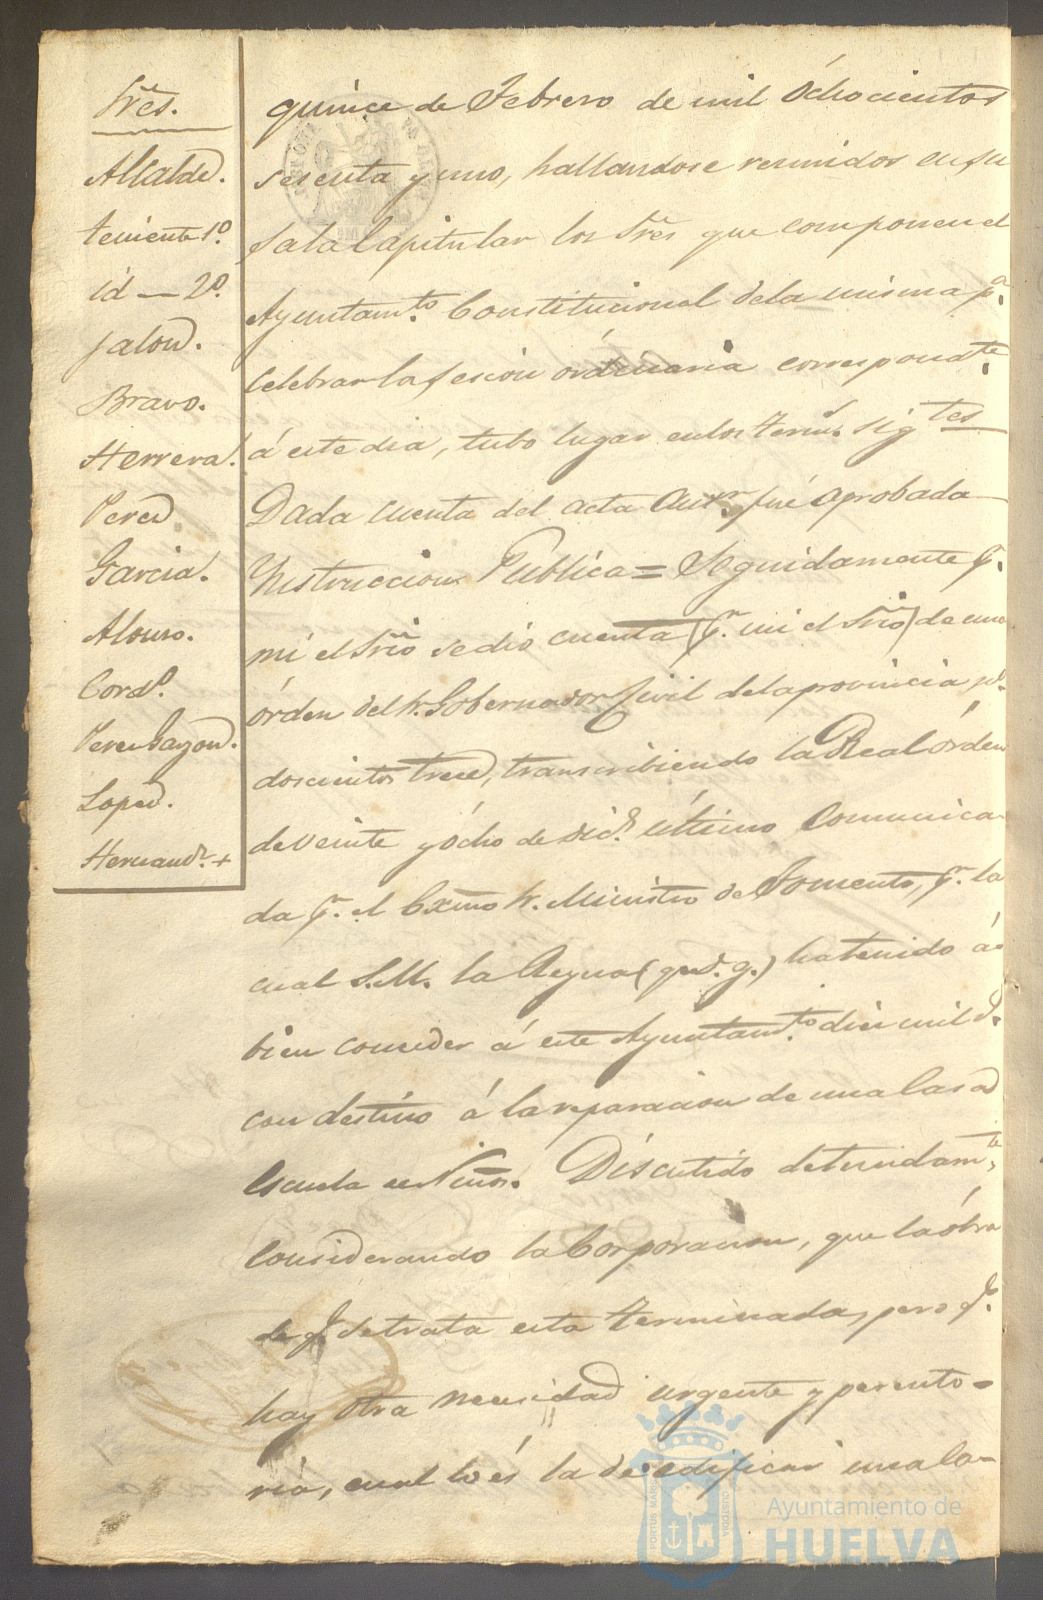 Sres.
Alcalde.
teniente 1º.
id — 2º.
Jalon.
Bravo.
Herrera.
Perez
Garcia.
Alonso.
Cordº.
Perez Gazon.
Lopez.
Hernandz. +
quince de Febrero de mil ochocientos
sesenta y uno, hallandose reunidos en su
sala Capitular los Sres que componen el
Ayuntamto. Constitucional de la misma pa.
celebrar la sesion ordinaria correspondte.
á este dia, tubo lugar en los terms. sigtes
Dada cuenta del acta antr. fué aprobada
Ynstruccion Publica = Seguidamente pr.
mi el Srio se dio cuenta (pr. mi el Srio) de una
órden del Sr. Gobernador Civil de la provincia
doscientos trece, transcribiendo la Real órden
de veinte y ocho de Dice. último comunica-
da pr. el Exmo Sr. Ministro de Fomento, pr. la
cual S.M. la Reyna (q. D. g.) ha tenido á
bien conceder á este Ayuntamto. diez mil rs.
con destino á la reparacion de una Casa
Escuela de Niños. Discutido detenidamte.
Considerando la Corporacion, que la obra
de qe. se trata esta terminada, pero qe.
hay otra necesidad urgente y perento-
ria, cual lo és la de edificar una Ca-
PORTUS MARIS
CUSTODIA
Ayuntamiento de
HUELVA